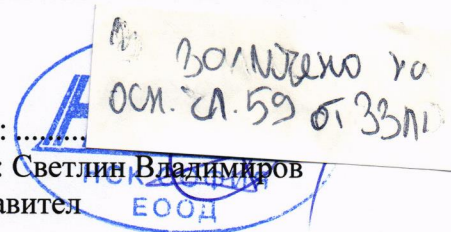 Заличено на
осн. чл. 59 от ЗЗЛД
: ..........
: Светлин Владимиров
авител
ЕООД